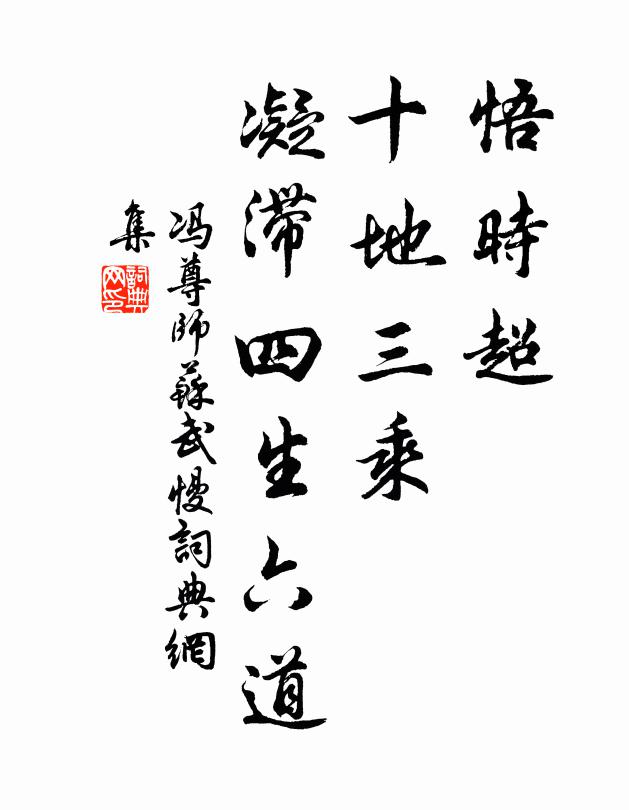 悟時超
十地三乘
凝滯四生六道
冯尊師蘇武慢詞典網
集
詞典
网印